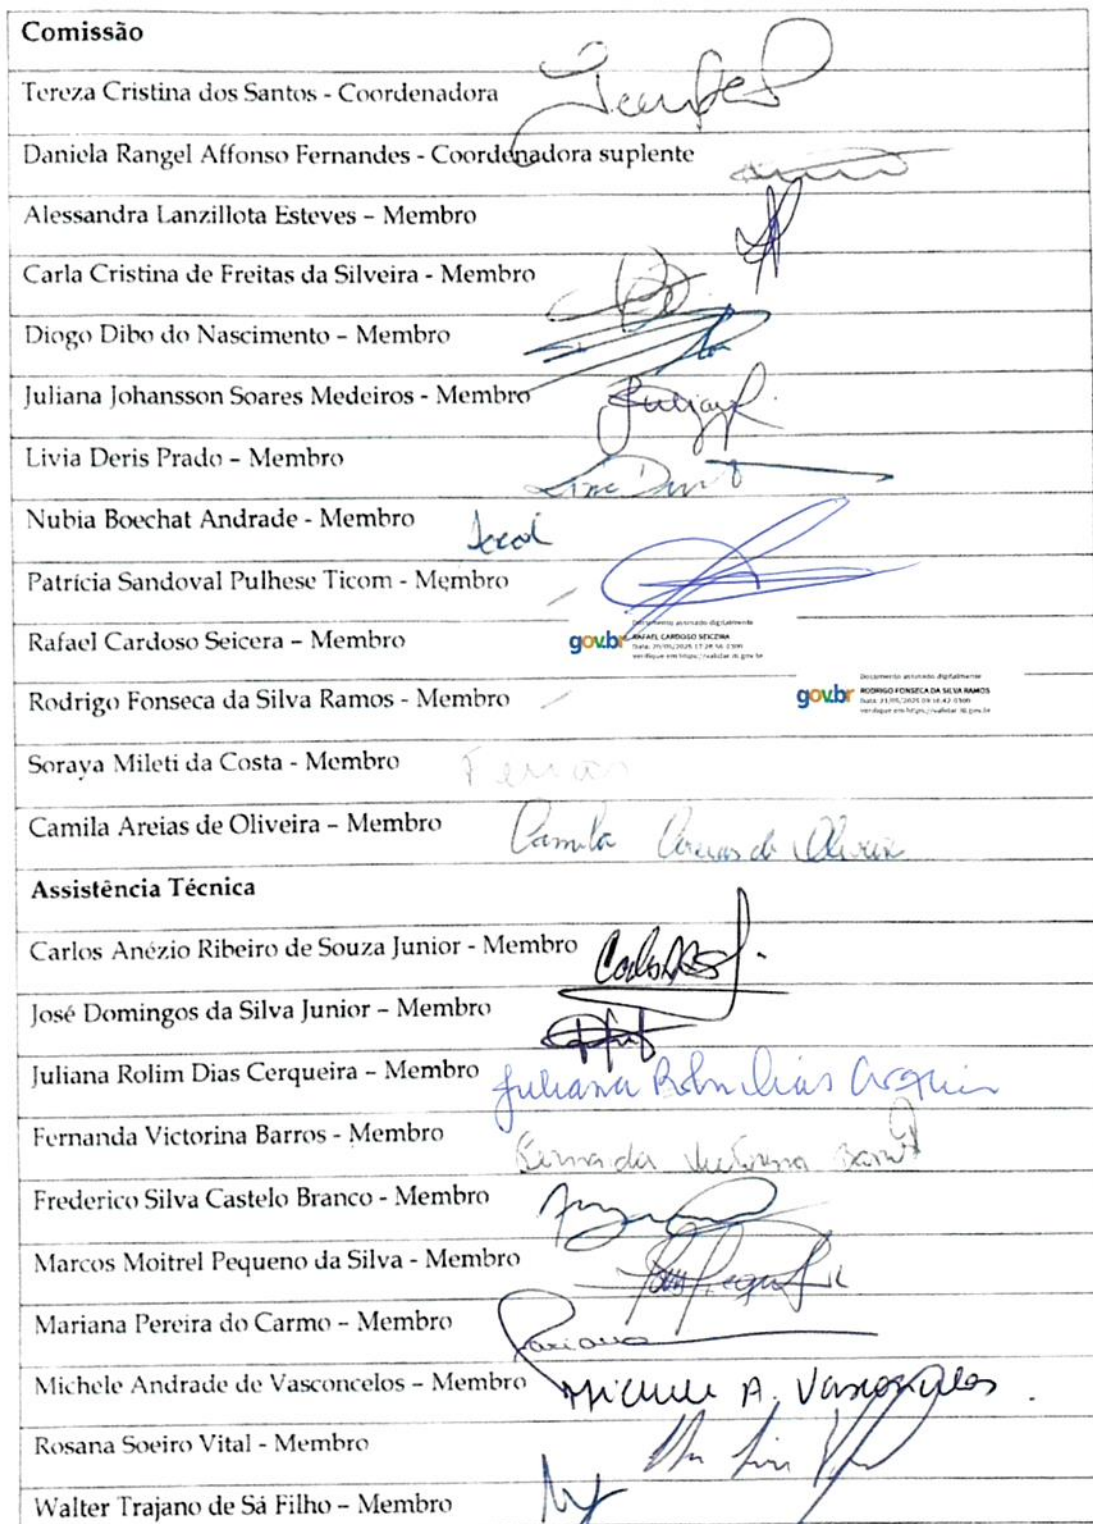 Comissão
Tereza Cristina dos Santos - Coordenadora
Daniela Rangel Affonso Fernandes - Coordenadora suplente
Alessandra Lanzillota Esteves – Membro
Carla Cristina de Freitas da Silveira - Membro
Diogo Dibo do Nascimento – Membro
Juliana Johansson Soares Medeiros - Membro
Livia Deris Prado – Membro
Nubia Boechat Andrade - Membro
Patrícia Sandoval Pulhese Ticom - Membro
Documento assinado digitalmente
Rafael Cardoso Seicera – Membro gov.br RAFAEL CARDOSO SEICZIRA
Documento assinado digitalmente
Rodrigo Fonseca da Silva Ramos - Membro gov.br RODRIGO FONSECA DA SILVA RAMOS
Soraya Mileti da Costa - Membro
Camila Areias de Oliveira – Membro Camila Areias de Oliveira
Assistência Técnica
Carlos Anézio Ribeiro de Souza Junior - Membro
José Domingos da Silva Junior – Membro
Juliana Rolim Dias Cerqueira – Membro Juliana Rolim Dias Cerqueira
Fernanda Victorina Barros - Membro Fernanda Victorina Barros
Frederico Silva Castelo Branco - Membro
Marcos Moitrel Pequeno da Silva - Membro
Mariana Pereira do Carmo – Membro Mariana
Michele Andrade de Vasconcelos – Membro Michele A. Vasconcelos.
Rosana Soeiro Vital - Membro
Walter Trajano de Sá Filho – Membro